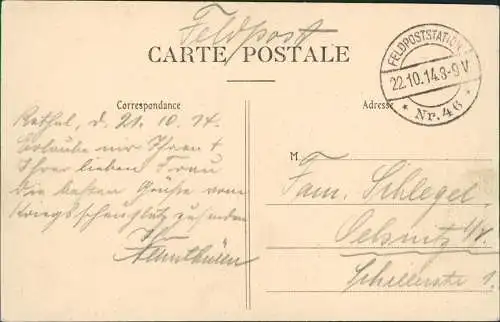 Feldpost
CARTE POSTALE
FELDPOSTSTATION
22.10.14.8-9 V
* Nr. 46 *
Correspondance
Adresse
Rethel, d. 21. 10. 14.
Erlaube mir Ihnen &
Ihrer lieben Frau
die besten Grüße vom
Kriegsschauplatz zu senden
M
Fam. Schlegel,
Oelsnitz i/V.
Schillerstr. 1.